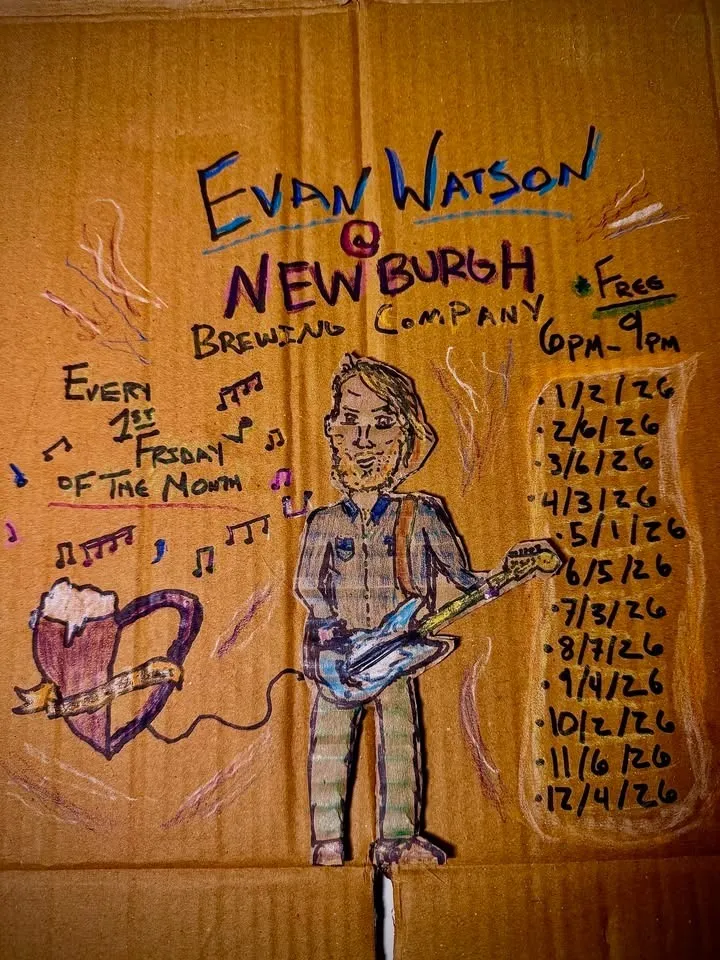 EVAN WATSON
@
NEWBURGH
BREWING COMPANY
* FREE
6PM-9PM
EVERY
1ST
FRIDAY
OF THE MONTH
• 1/2/26
• 2/6/26
• 3/6/26
• 4/3/26
• 5/1/26
• 6/5/26
• 7/3/26
• 8/7/26
• 9/4/26
• 10/2/26
• 11/6/26
• 12/4/26